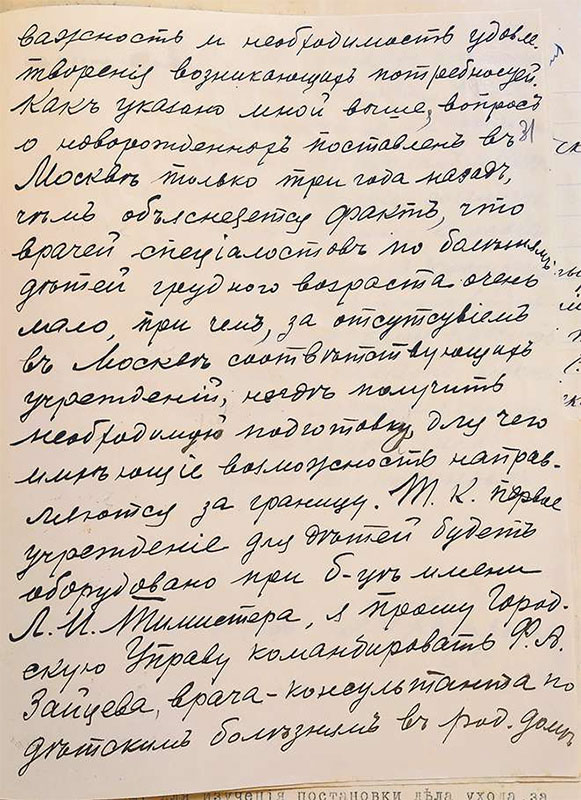 важность и необходимость удовле-
творенія возникающихъ потребностей.
Какъ указано мной выше, вопросъ
о новорожденныхъ поставленъ въ
31
Москвѣ только три года назадъ,
чѣмъ объясняется фактъ, что
врачей спеціалостовъ по болѣзнямъ
дѣтей грудного возраста очень
мало, при чемъ, за отсутсувіемъ
въ Москвѣ соотвѣтствующихъ
учрежденій, негдѣ получить
необходимую подготовку, для чего
имѣющіе возможность направ-
ляются за границу. Т. К. первое
учрежденіе для дѣтей будетъ
оборудовано при б-цѣ имени
Л. И. Тимистера, я прошу Город.
скую Управу командировать Ф. А.
Зайцева, врача-консультанта по
дѣтскимъ болѣзнямъ въ род. домѣ
изученія постановки дѣла ухода за